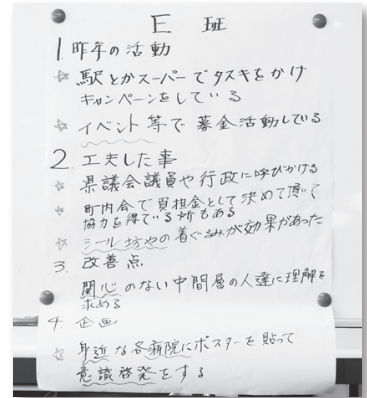 E 班
1. 昨年の活動
☆ 駅とかスーパーでタスキをかけ
キャンペーンをしている
☆ イベント等で募金活動している
2. 工夫した事
☆ 県議会議員や行政に呼びかける
☆ 町内会で負担金として決めて頂いて
協力を得ている所もある
☆ シール坊やの着ぐるみが効果があった
3. 改善点
関心のない中間層の人達に理解を
求める
4. 企画
☆ 身近な各病院にポスターを貼って
意識啓発をする